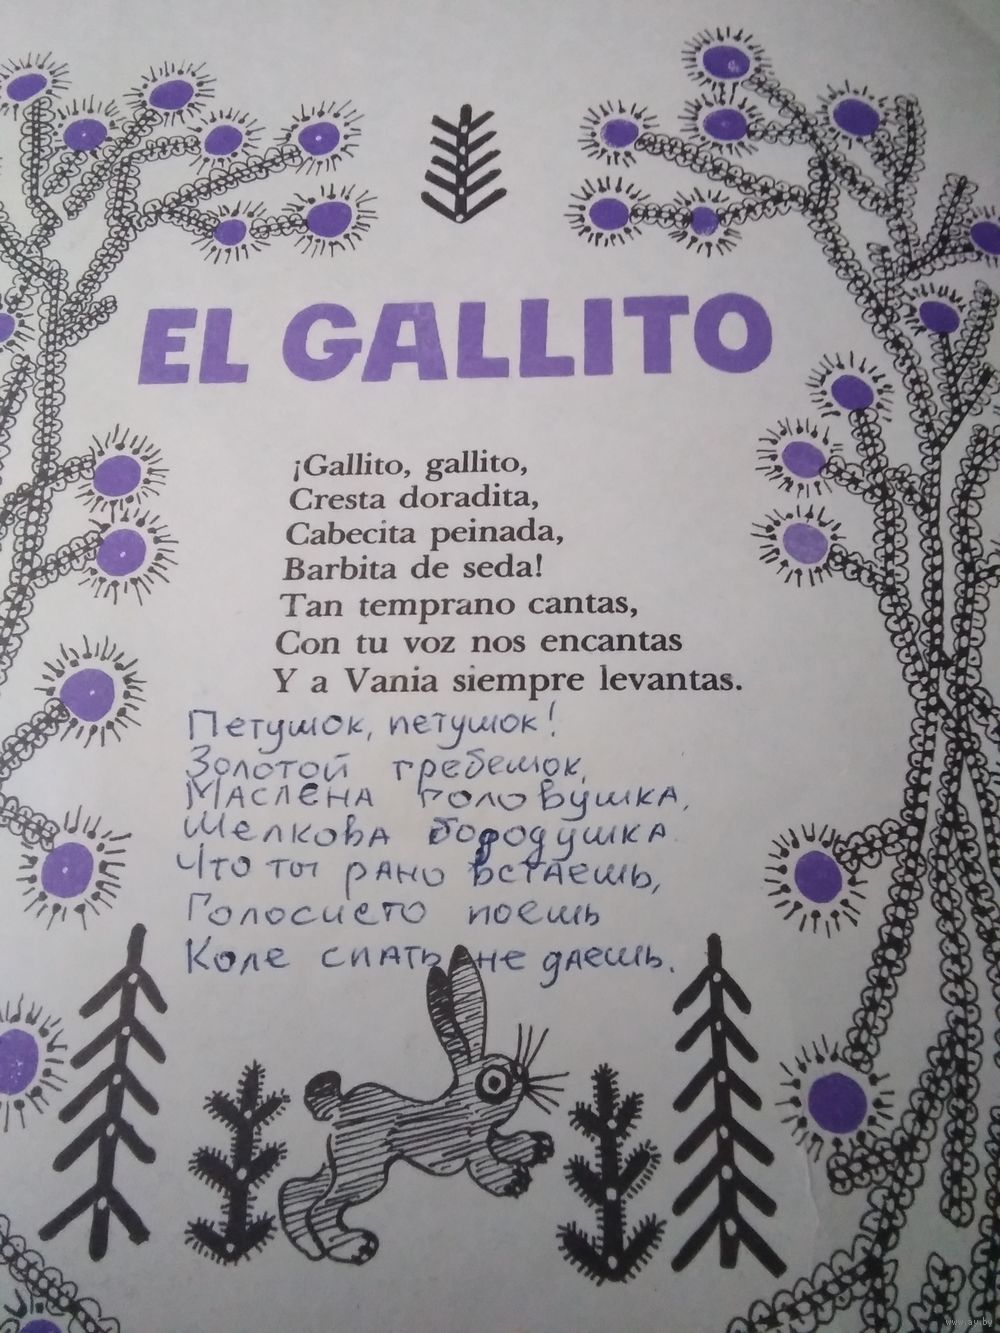 EL GALLITO
¡Gallito, gallito,
Cresta doradita,
Cabecita peinada,
Barbita de seda!
Tan temprano cantas,
Con tu voz nos encantas
Y a Vania siempre levantas.
Петушок, петушок!
Золотой гребешок,
Маслена головушка,
Шелкова бородушка.
Что ты рано встаешь,
Голосисто поешь
Коле спать не даешь.
www.ay.by